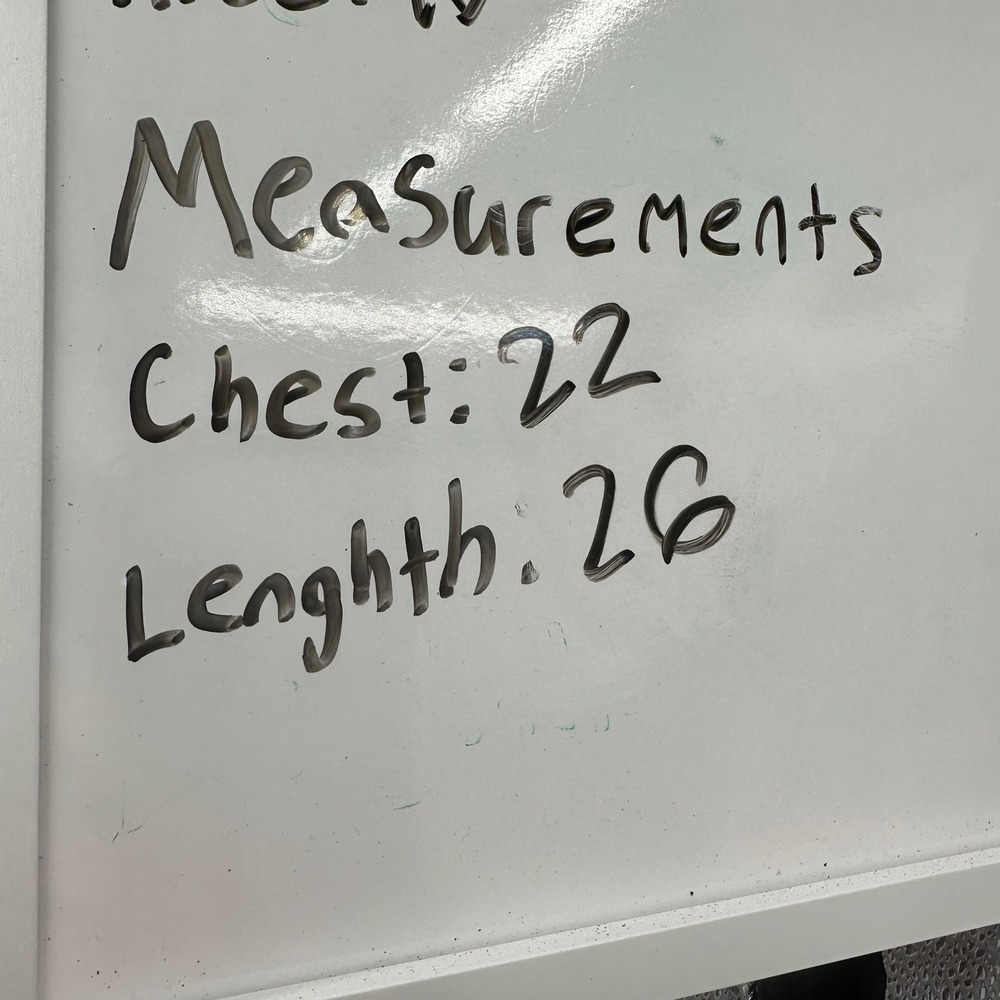 Measurements
Chest: 22
Lenghth. 26